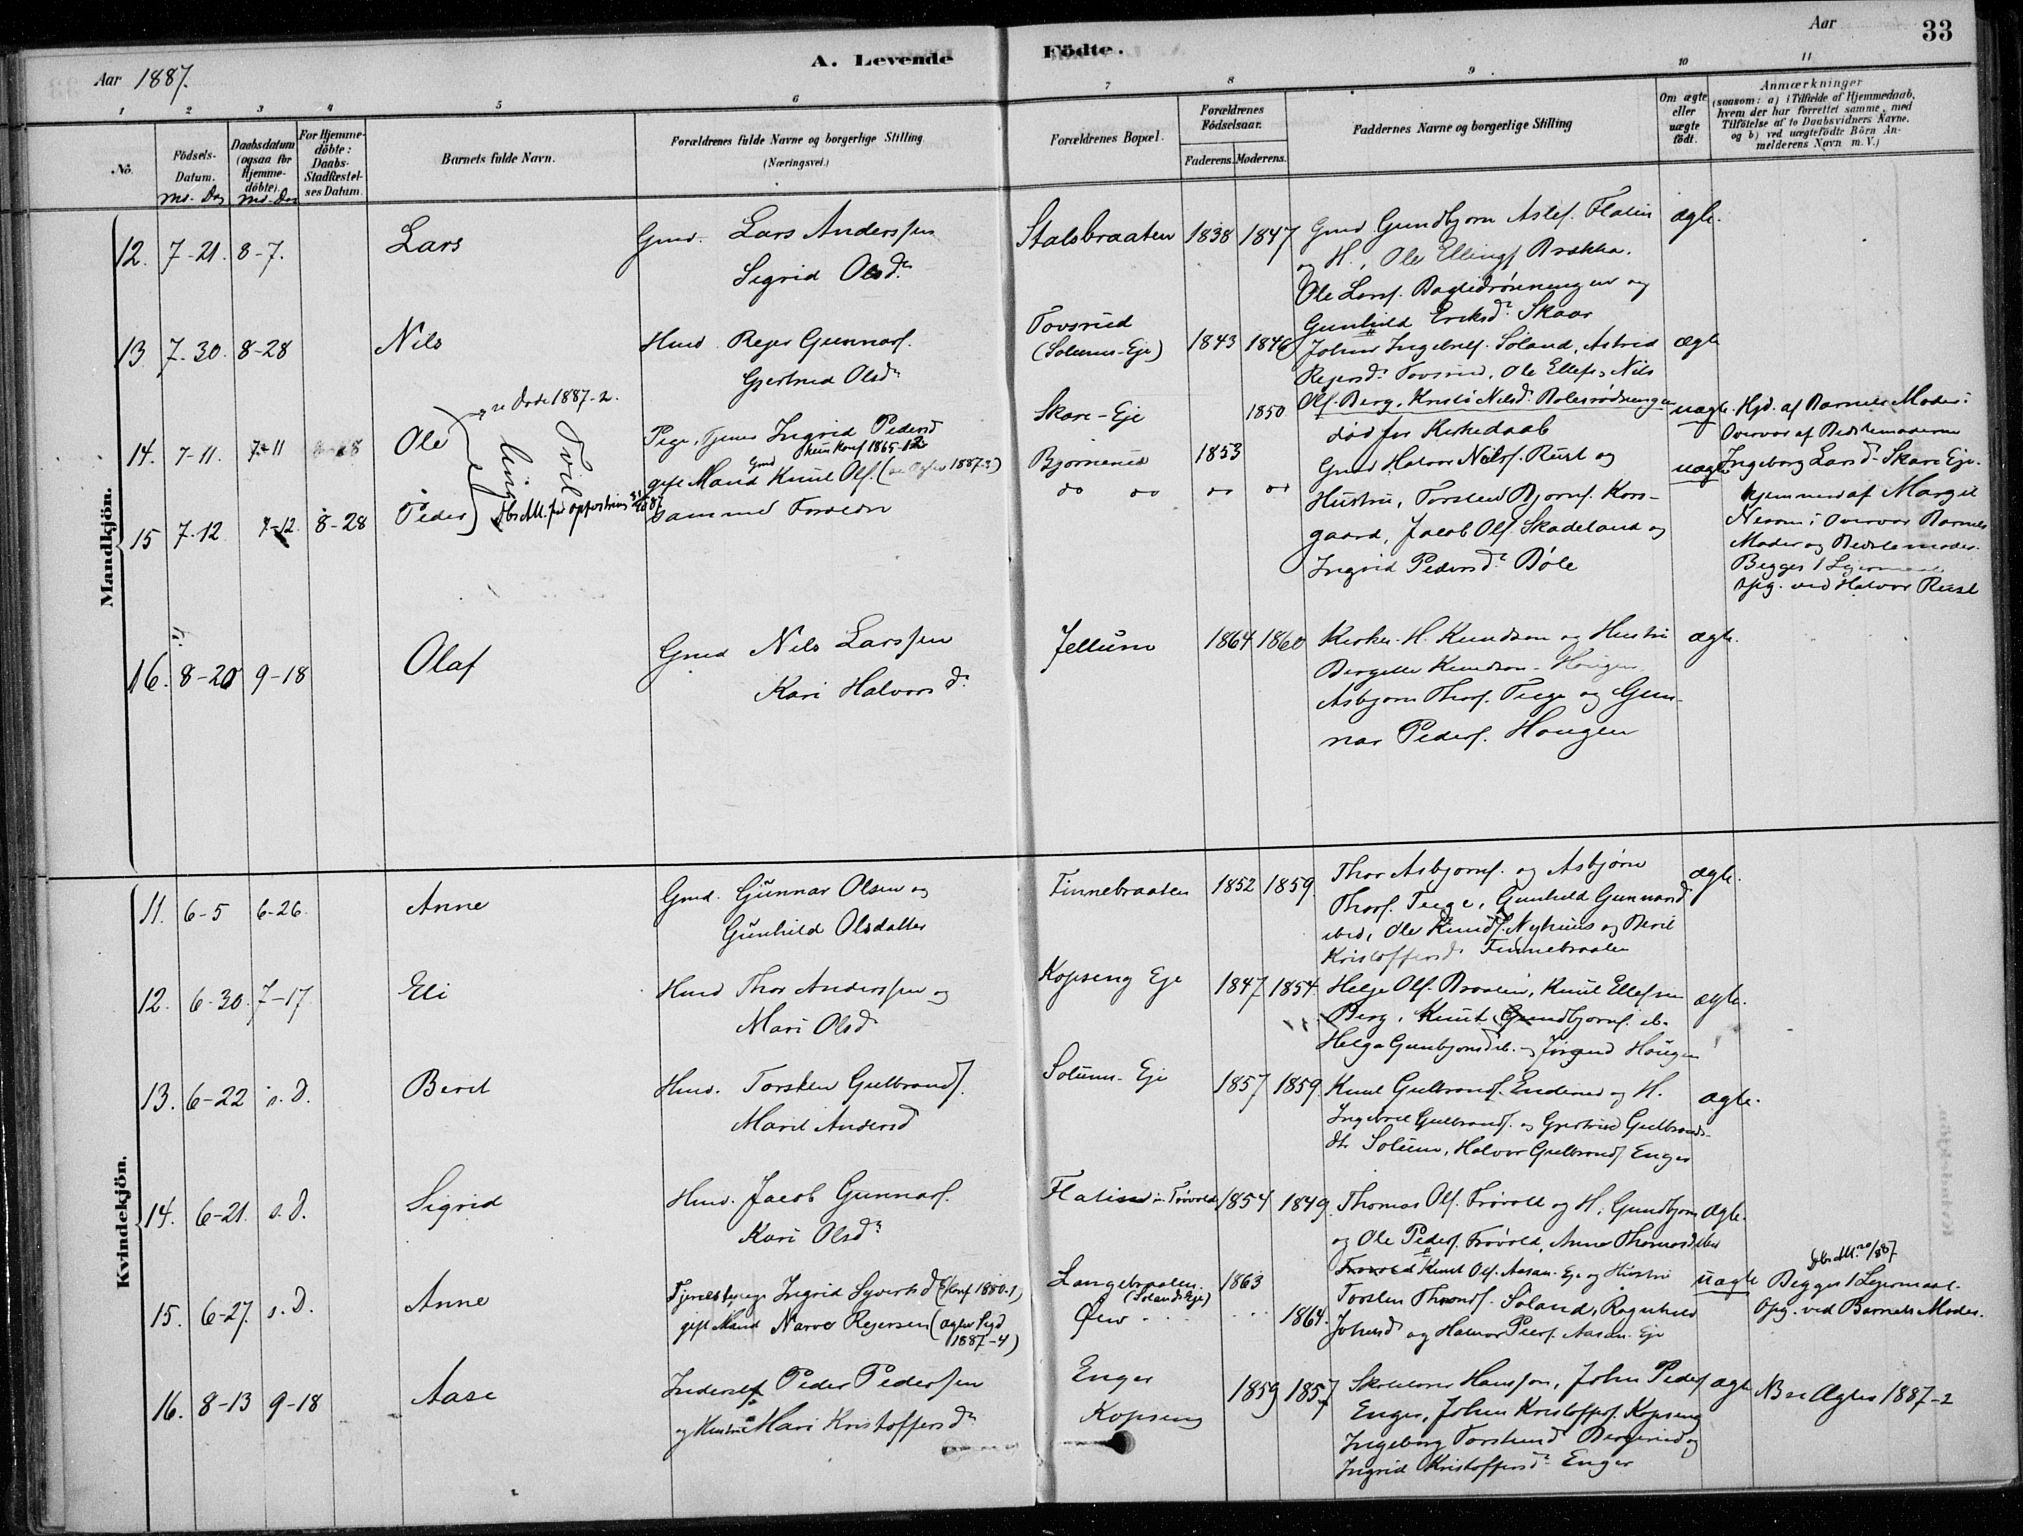 Aar 1887.
A. Levende
Födte.
Aar
33
1 2 3 4 5 6 7 8 9 10 11
No.
Födsels-Datum.
Md. Dag
Daabsdatum (ogsaa for Hjemme-döbte).
Md. Dag
For Hjemme-döbte: Daabs-Stadfæstel-ses Datum.
Barnets fulde Navn.
Forældrenes fulde Navne og borgerlige Stilling
(Næringsvei.)
Forældrenes Bopæl.
Forældrenes Födselsaar.
Faderens. Moderens.
Faddernes Navne og borgerlige Stilling
Om ægte eller uægte födt.
Anmærkninger
(saasom: a) i Tilfælde af Hjemmedaab, hvem der har forrettet samme, med Tilföielse af to Daabsvidners Navne. og b) ved uægtefödte Börn An-melderens Navn m. V.)
Mandkjön.
12. 7-21. 8-7. Lars
Gmd. Lars Anderssen
Sigrid Olsdr
Stalsbraaten 1838 1847
Gmd Gundbjørn Aslef. Flatin
og H., Ole Ellingf Brekka.
Ole Larsf. Bagliedrønningen og
Gunhild Eriksdr Skaar
ægte.
13. 7-30. 8-28 Nils
Hmd. Rejer Gunnarf.
Gjertrud Olsdr
Tovsrud
(Solums-Eje) 1843 1846
Johns Ingebrelf. Soland, Astrid
Rejersdr Tovsrud, Ole Ellefs, Nils
Olf. Berg, Kristi Nilsdr Bolesrødningen
ægte
14. 7-11. 7-11 Ole
se Døde 1887-2.
Tvil
ling
Pige, Tjener Ingrid Pedersd
Konf 1865-12
gift Mand Gmd Knut Olf. (se Ægtev 1887-3)
Skare-Eje 1850
Bjørnerud 1853
død før Kirkedaab
uægte.
Hjd. af Barnets Moder:
Overvar af Bedstemoderen
Ingeborg Larsd. Skare Eje.
15 7-12. 7-12. 8-28 Peder
samme Forældre
do do do do
Gmd Halvor Nilsf. Rust og
Hustru, Torsten Bjørnf. Kors-
gaard, Jacob Olf. Skadeland og
Ingrid Pedersdr Bøle
uægte
Hjemmed af Margit
Nerom: Overvar Barnets
Moder og Bedstemoder.
Begges 1 Lejermaal
Opg. ved Halvor Rust
16. 8-20 9-18 Olaf
Gmd Nils Larssen
Kari Halvorsdr
Jellum 1864 1860
Kirkes. H. Knudsen og Hustru
Bergitte Knudson-Haugen
Asbjørn Thorf. Teege og Gun-
nar Pedersf. Haugen
ægte.
Kvindekjön.
11. 6-5 6-26. Anne
Gmd. Gunnar Olsen og
Gunhild Olsdatter
Finnebraaten 1852 1859
Thor Asbjørnf. og Asbjørn
Thorf. Teege, Gunhild Gunnarsd
ibid, Ole Knudf. Nyhuus og Beret
Kristoffersdr Finnebraaten
ægte.
12. 6-30. 7-17. Eli
Hmd Thor Anderssen og
Mari Olsdr
Kopseng Eje 1847 1854
Helge Olf. Braaten, Knut Ellefsen
Berg, Knut Gundbjørnf. ib.
Helga Gunbjørnsd ib. og Jørand Haugen
ægte.
13. 6-22 s. D. Berit
Hmd. Torsten Gulbrandf.
Marit Andersd
Solum-Eje 1857 1859.
Knut Gulbrandf. Enderud og H.
Ingebret Gulbrandf. og Gjertrud Gulbrands-
dtr Solum, Halvor Gulbrandf Enger
ægte.
14. 6-21. s. D. Sigrid
Hmd. Jacob Gunnarf.
Kari Olsdr
Flatin u. Frøvold 1854 1849.
Thomas Olf. Frøvold og H. Gundbjørn
og Ole Pedersf. Frøvold, Anne Thomasd ibid
ægte.
15. 6-27. s. D. Anne
Tjenestepige Ingrid Syvertsd (Konf 1880-1)
gift Mand Narve Rejersen (ægtev Sigd 1887-4)
Langebraaten
(Solands Eje) 1863
1864.
Frøvold Knut Olf. Aasan-Eje og Hustru
Torsten Throndf. Soland, Ragnhild
Johnsdr og Halvor Pedersf. Aasan-Eje
uægte
Begges 1 Lejermaal.
Opg. ved Barnets Moder.
16. 8-13 9-18 Aase
Inderst Peder Pedersen
og Hustru Mari Kristoffersdr
Enger
Kopseng 1859 1857
Skolelærer Hansson, John Pedersf
Enger, John Kristoffersf. Kopseng
Ingeborg Torstensd Bergerud og
Ingrid Kristoffersdr Enger
ægte
NB se Ægtev 1887-2